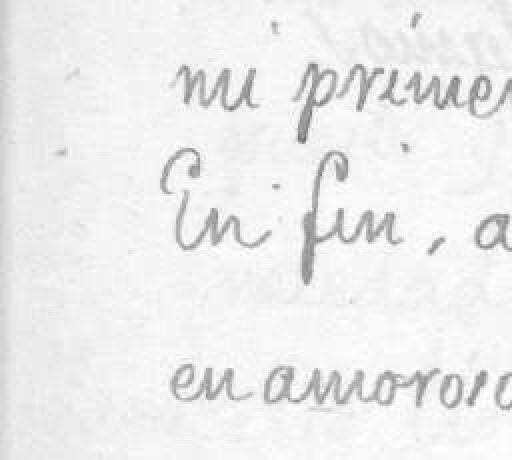 mi primer
En fin, a
en amoroso